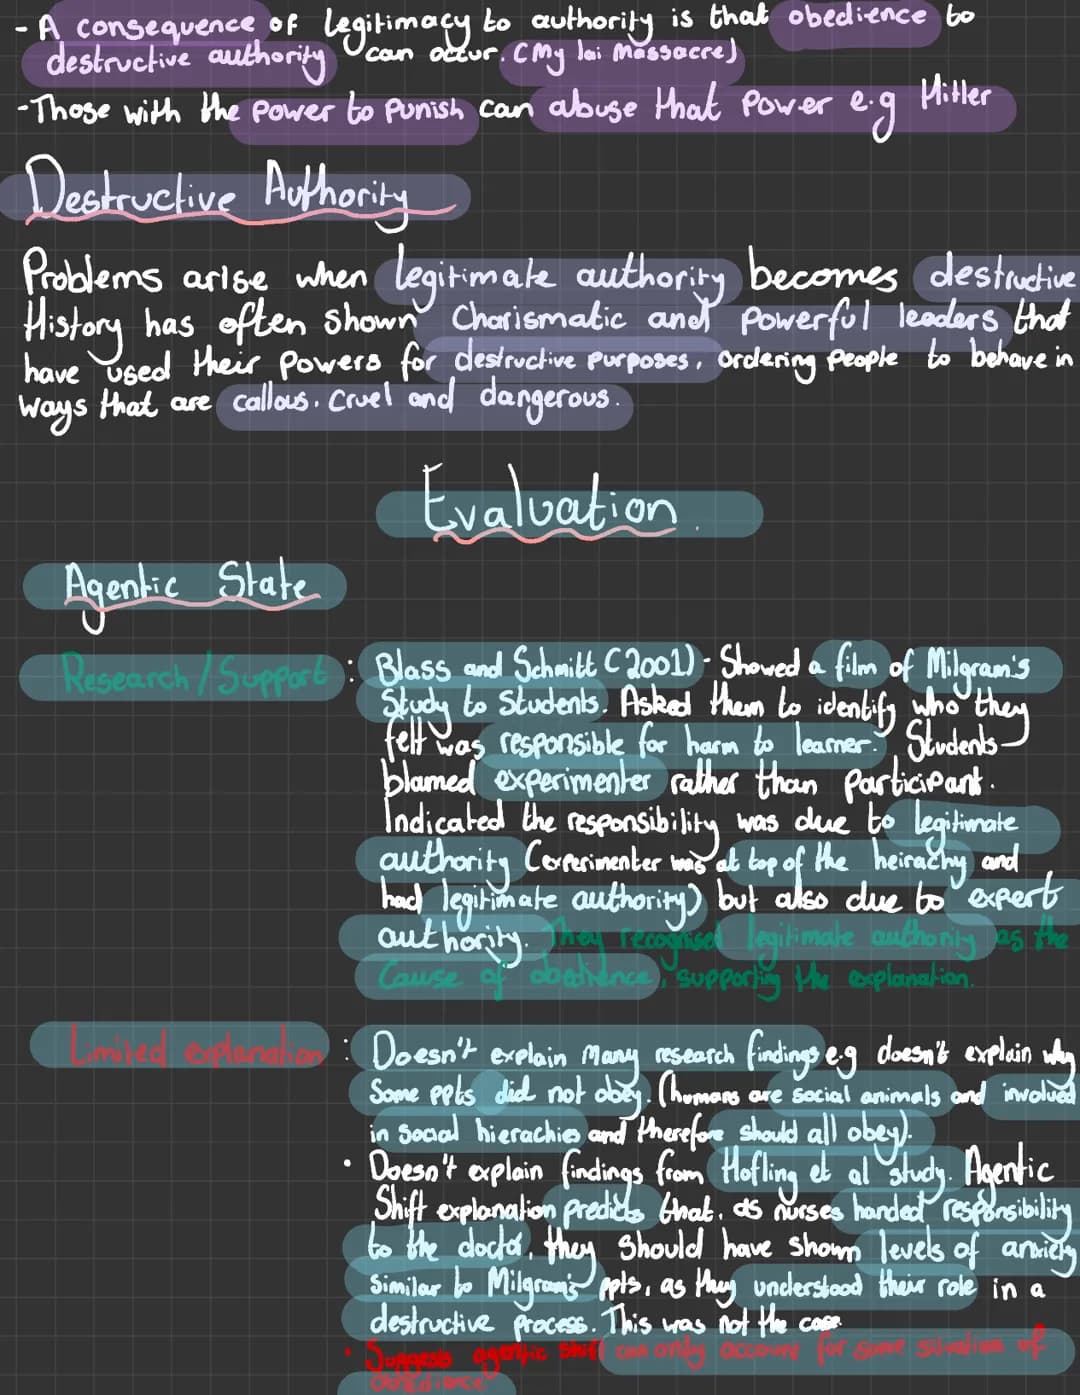 - A consequence of legitimacy to authority is that obedience to
destructive authority can occur. (My lai Massacre)
- Those with the power to punish can abuse that power e.g Hitler
Destructive Authority
Problems arise when legitimate authority becomes destructive
History has often shown charismatic and powerful leaders that
have used their powers for destructive purposes, ordering people to behave in
ways that are callous, cruel and dangerous.
Evaluation.
Agentic State
Research/Support : Blass and Schmitt (2001) - Showed a film of Milgram's
Study to Students. Asked them to identify who they
felt was responsible for harm to learner. Students
blamed experimenter rather than participant.
Indicated the responsibility was due to legitimate
authority (experimenter was at top of the heirachy and
had legitimate authority) but also due to expert
authority. They recognised legitimate authority as the
cause of obedience, supporting the explanation.
Limited explanation : Doesn't explain many research findings e.g doesn't explain why
Some ppts did not obey. (humans are social animals and involved
in social hierachies and therefore should all obey).
• Doesn't explain findings from Hofling et al study. Agentic
Shift explanation predicts that, as nurses handed responsibility
to the doctor, they should have shown levels of anxiety
similar to Milgram's ppts, as they understood their role in a
destructive process. This was not the case.
• Suggests agentic shift can only account for some situations of
obedience